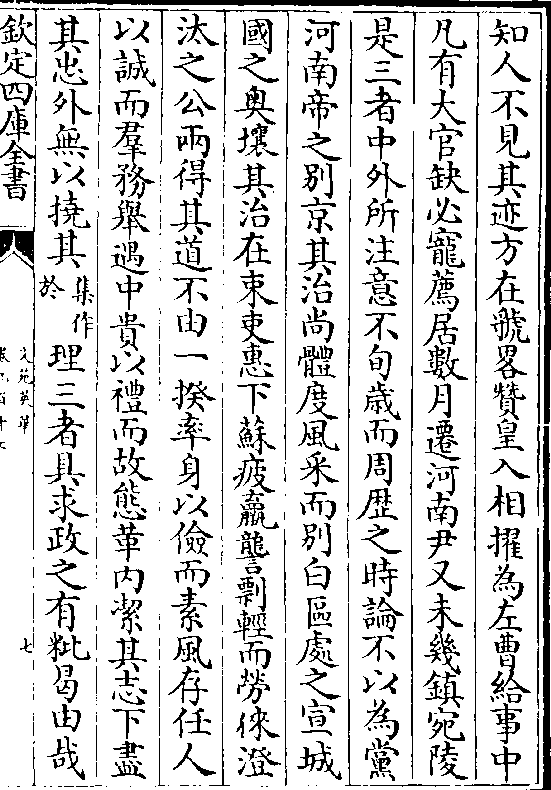 知人不見其迹方在虢畧贊皇入相擢為左曹給事中
凡有大官缺必寵薦居數月遷河南尹又未幾鎮宛陵
是三者中外所注意不旬歲而周歴之時論不以為黨
河南帝之别京其治尚體度風采而别白區處之宣城
國之奥壤其治在束吏惠下蘇疲羸讋剽輕而勞徠澄
汰之公兩得其道不由一揆率身以儉而素風存任人
以誠而羣務舉遇中貴以禮而故態革内潔其志下盡
其忠外無以撓其集作於理三者具求政之有粃曷由哉
欽定四庫全書
文苑英華
七